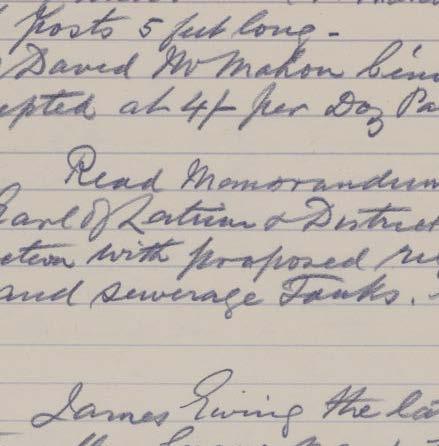 Posts 5 feet long -
David McMahon bein
epted at 4/- per Doz Pa
Read Memorandum
Earl of & District
ction with proposed
and sewerage Tanks.
James Ewing the la